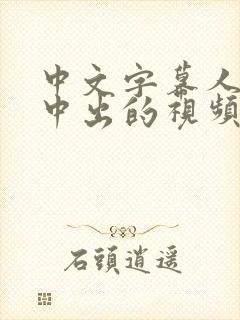 中文字幕人
中出的視頻
石頭逍遥